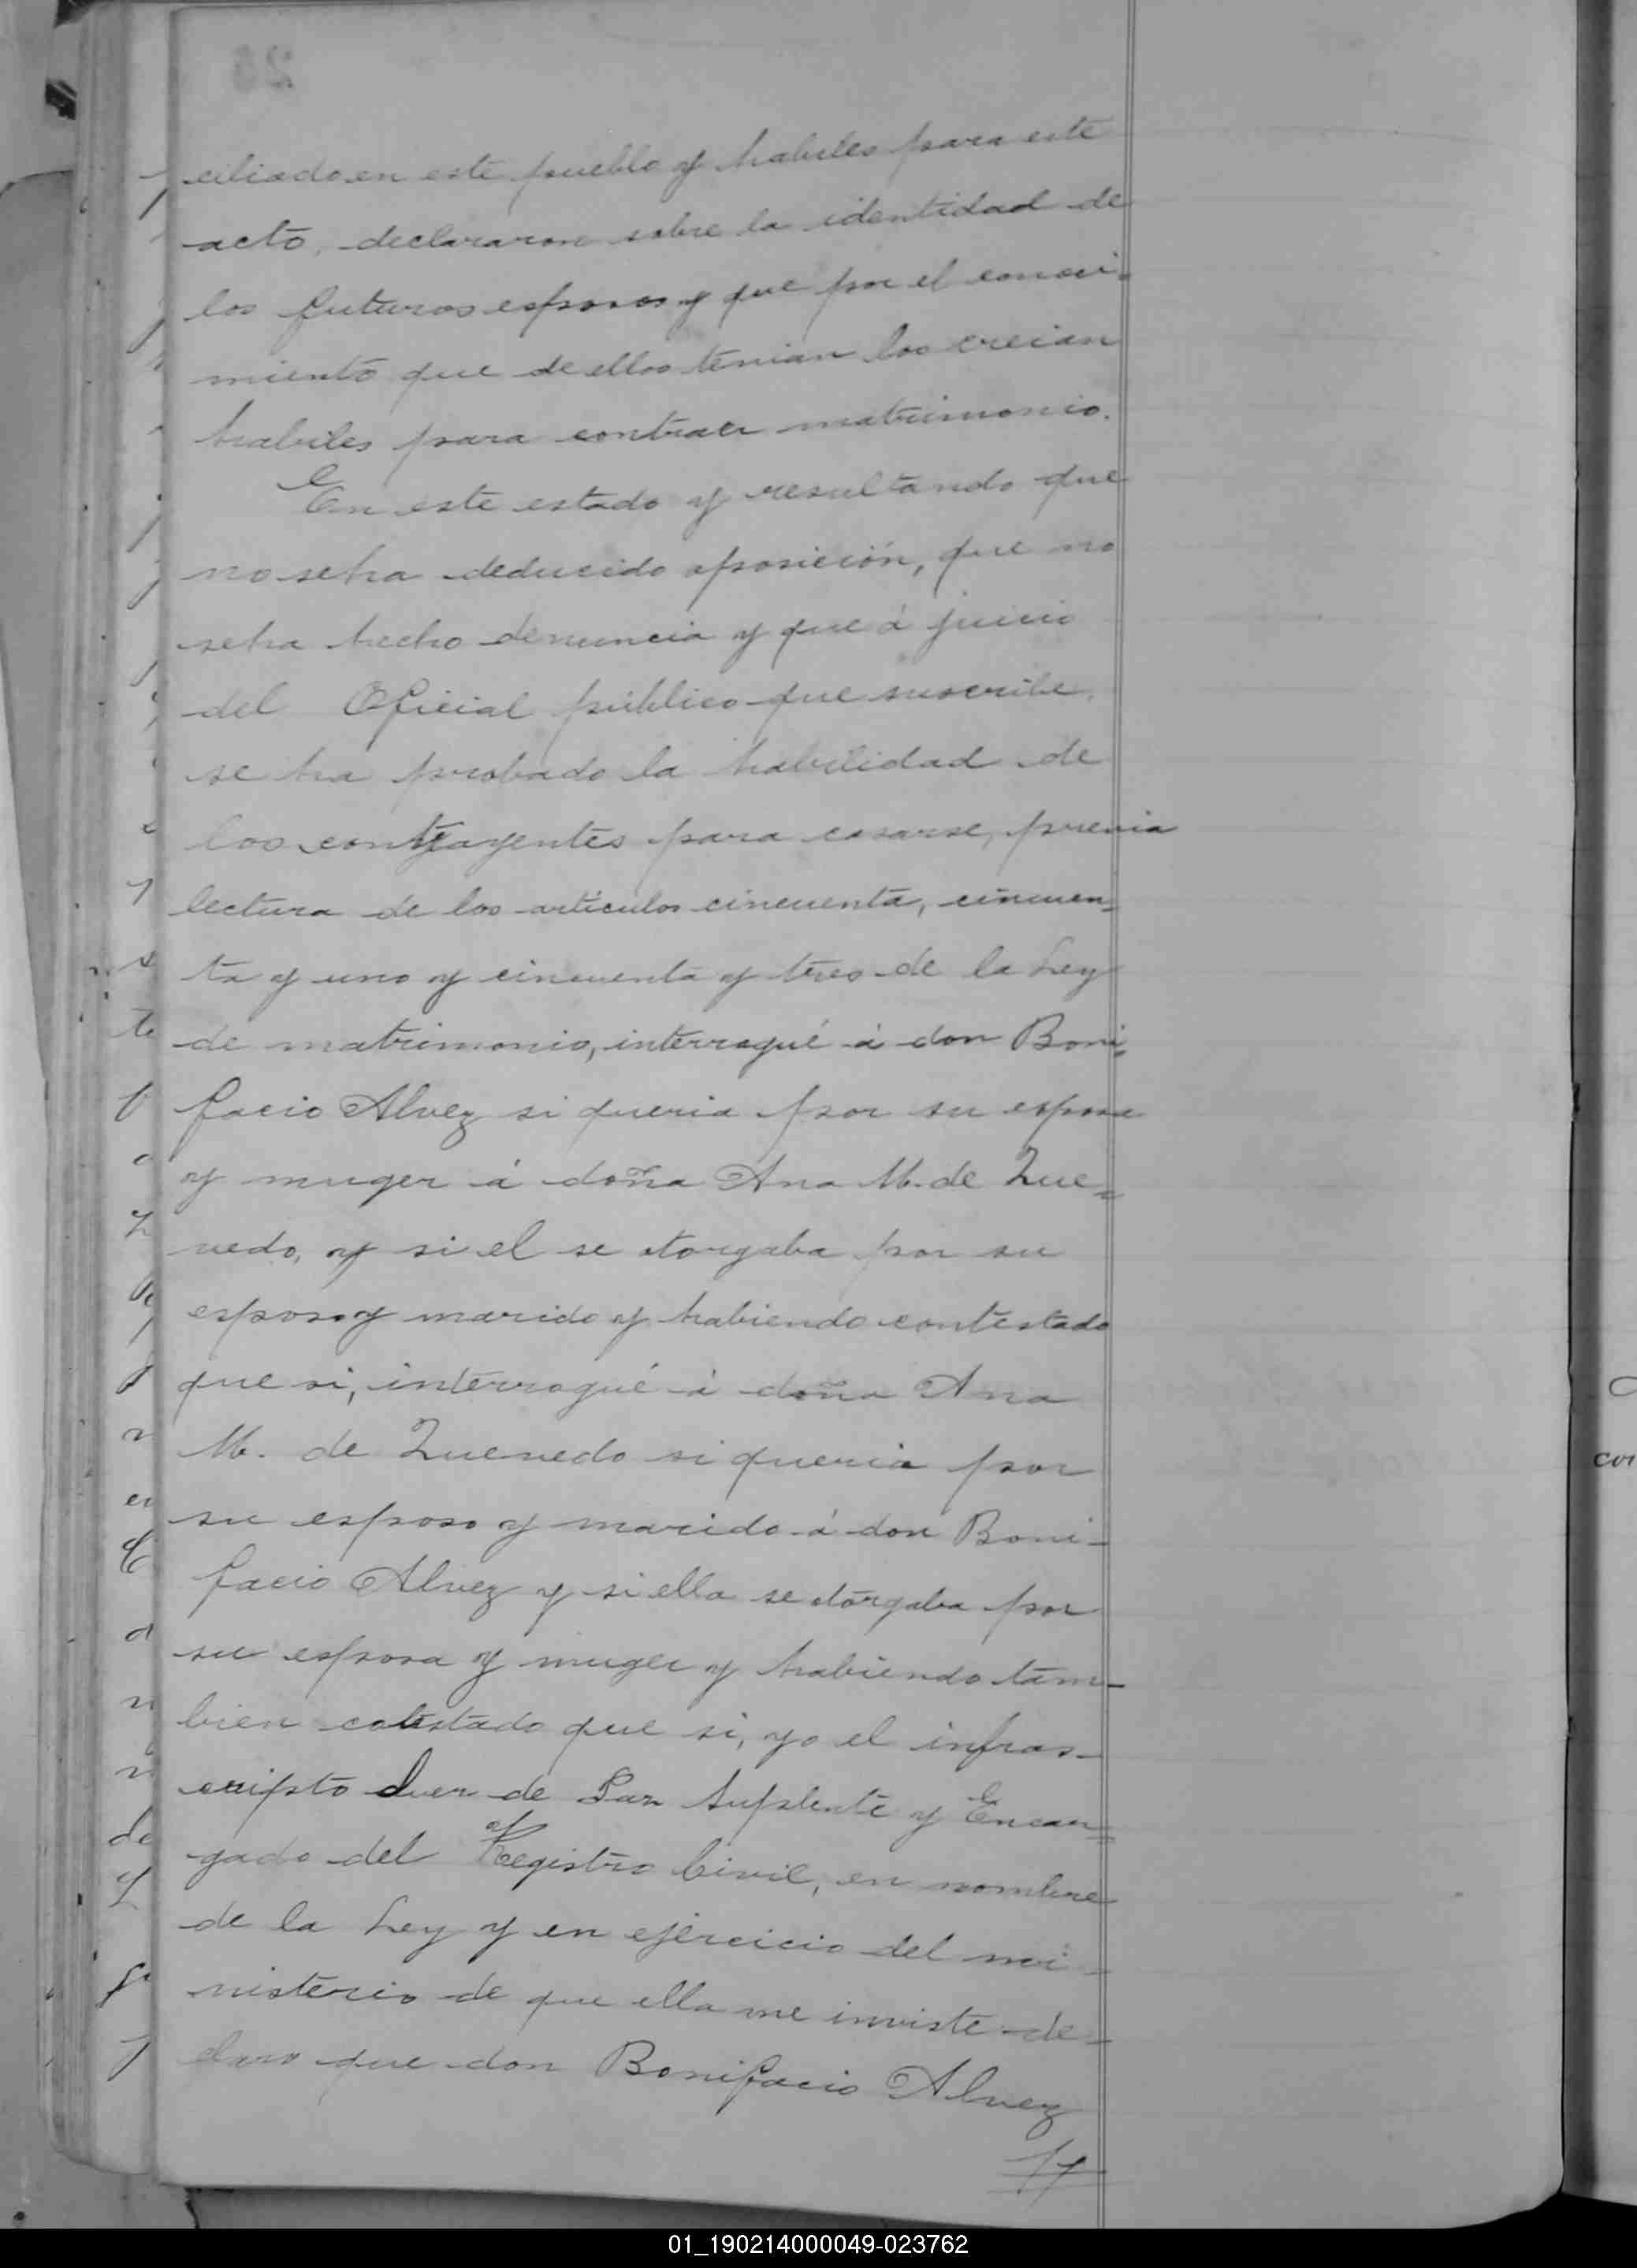 ciliado en este pueblo y habiles para este
acto, declararon sobre la identidad de
los futuros esposos y que por el conoci-
miento que de ellos tenian los creian
habiles para contraer matrimonio.
En este estado y resultando que
no se ha deducido oposición, que no
se ha hecho denuncia y que á juicio
del Oficial público que suscribe,
se ha probado la habilidad de
los contrayentes para casarse, previa
lectura de los articulos cincuenta, cincuen=
ta y uno y cincuenta y tres de la Ley
de matrimonio, interrogué á don Boni=
facio Alvez si queria por su esposa
y muger á doña Ana M. de Que=
vedo, y si el se otorgaba por su
esposo y marido y habiendo contestado
que si, interrogué á doña Ana
M. de Quevedo si queria por
su esposo y marido á don Boni-
facio Alvez y si ella se otorgaba por
su esposa y muger y habiendo tam-
bien contestado que si, yo el infras-
cripto Juez de Paz Suplente y Encar=
gado del Registro Civil, en nombre
de la Ley y en ejercicio del mi-
nisterio de que ella me inviste de-
claro que don Bonifacio Alvez
01_190214000049-023762